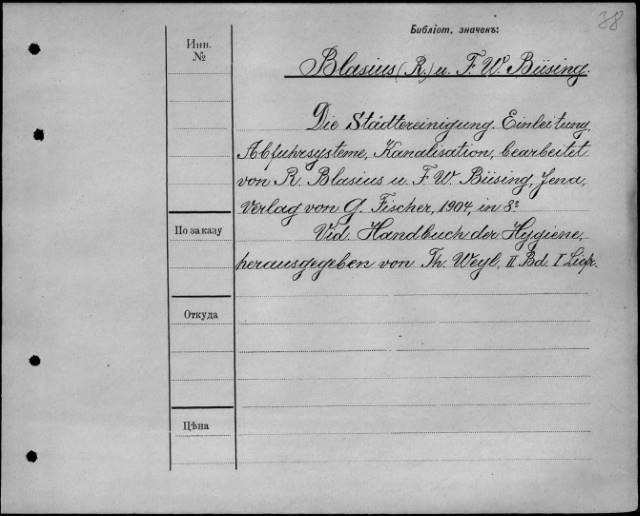 38
Библіот. значекъ:
Инв.
№
Blasius (R.) u. F. W. Büsing.
Die Städtereinigung. Einleitung,
Abfuhrsysteme, Kanalisation, bearbeitet
von R. Blasius u. F. W. Büsing, Jena,
Verlag von G. Fischer, 1904, in 8º
По заказу
Vid. Handbuch der Hygiene,
herausgegeben von Th. Weyl, II Bd. I Lief.
Откуда
Цѣна